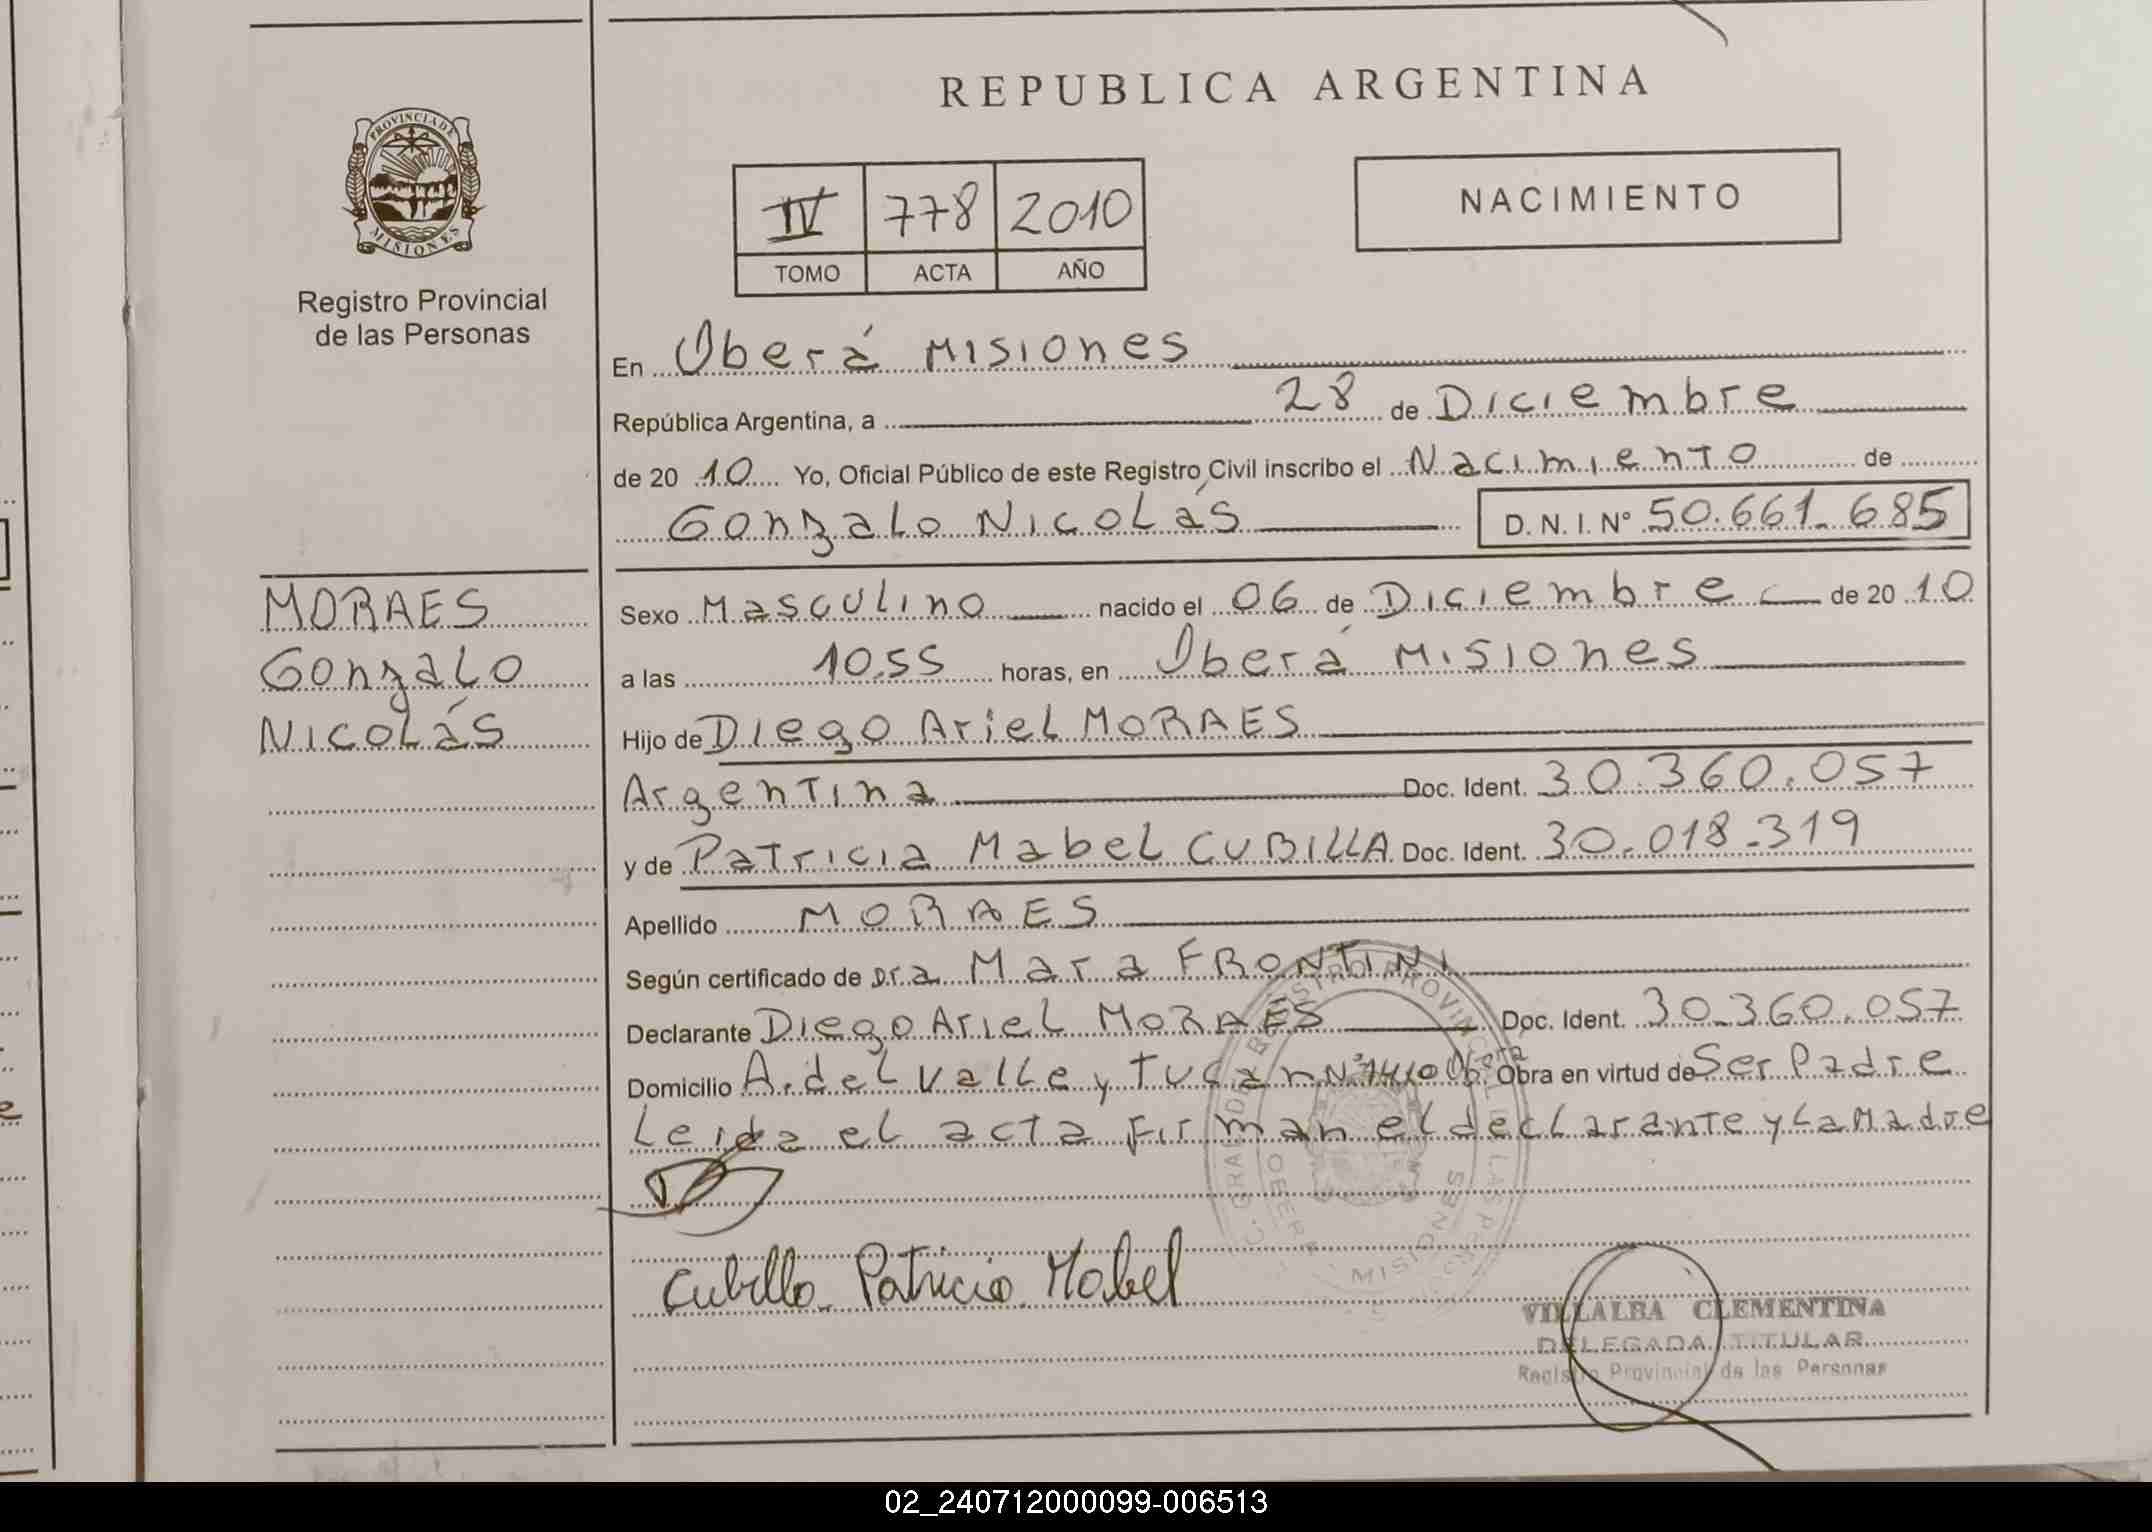 REPUBLICA ARGENTINA
PROVINCIA DE
MISIONES
Registro Provincial
de las Personas
IV 778 2010
TOMO ACTA AÑO
NACIMIENTO
En Oberá Misiones
República Argentina, a 28 de Diciembre
de 20 10 Yo, Oficial Público de este Registro Civil inscribo el Nacimiento de
Gonzalo Nicolás D. N. I. N° 50.661.685
MORAES
Gonzalo
Nicolás
Sexo Masculino nacido el 06 de Diciembre de 20 10
a las 10.55 horas, en Oberá Misiones
Hijo de Diego Ariel MORAES
Argentina Doc. Ident. 30.360.057
y de Patricia Mabel CUBILLA Doc. Ident. 30.018.319
Apellido MORAES
Según certificado de Dra Mara FRONTINI
Declarante Diego Ariel MORAES Doc. Ident. 30.360.057
Domicilio A. del Valle y Tucan Obra en virtud de Ser Padre
Leida el acta Firman el declarante y La Madre
Cubilla Patricia Mabel
VILLALBA CLEMENTINA
DELEGADA TITULAR
Registro Provincial de las Personas
02_240712000099-006513